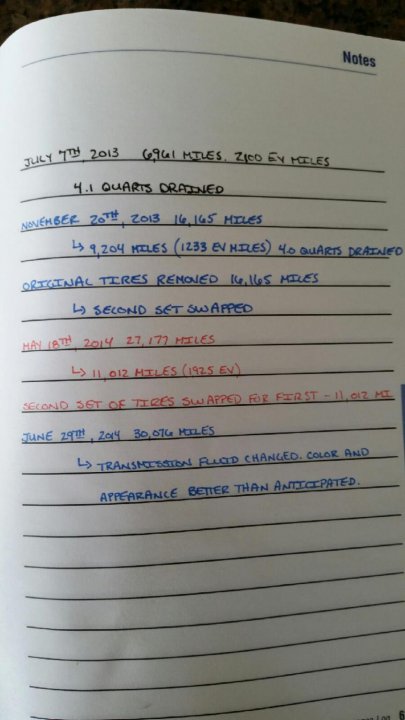 Notes
JULY 7TH, 2013 6961 MILES, 2100 EV MILES
4.1 QUARTS DRAINED
NOVEMBER 20TH, 2013 16,165 MILES
↳ 9,204 MILES (1233 EV MILES) 4.0 QUARTS DRAINED
ORIGINAL TIRES REMOVED 16,165 MILES
↳ SECOND SET SWAPPED
MAY 18TH, 2014 27,177 MILES
↳ 11,012 MILES (1925 EV)
SECOND SET OF TIRES SWAPPED FOR FIRST - 11,012 MI
JUNE 29TH, 2014 30,076 MILES
↳ TRANSMISSION FLUID CHANGED. COLOR AND
APPEARANCE BETTER THAN ANTICIPATED.